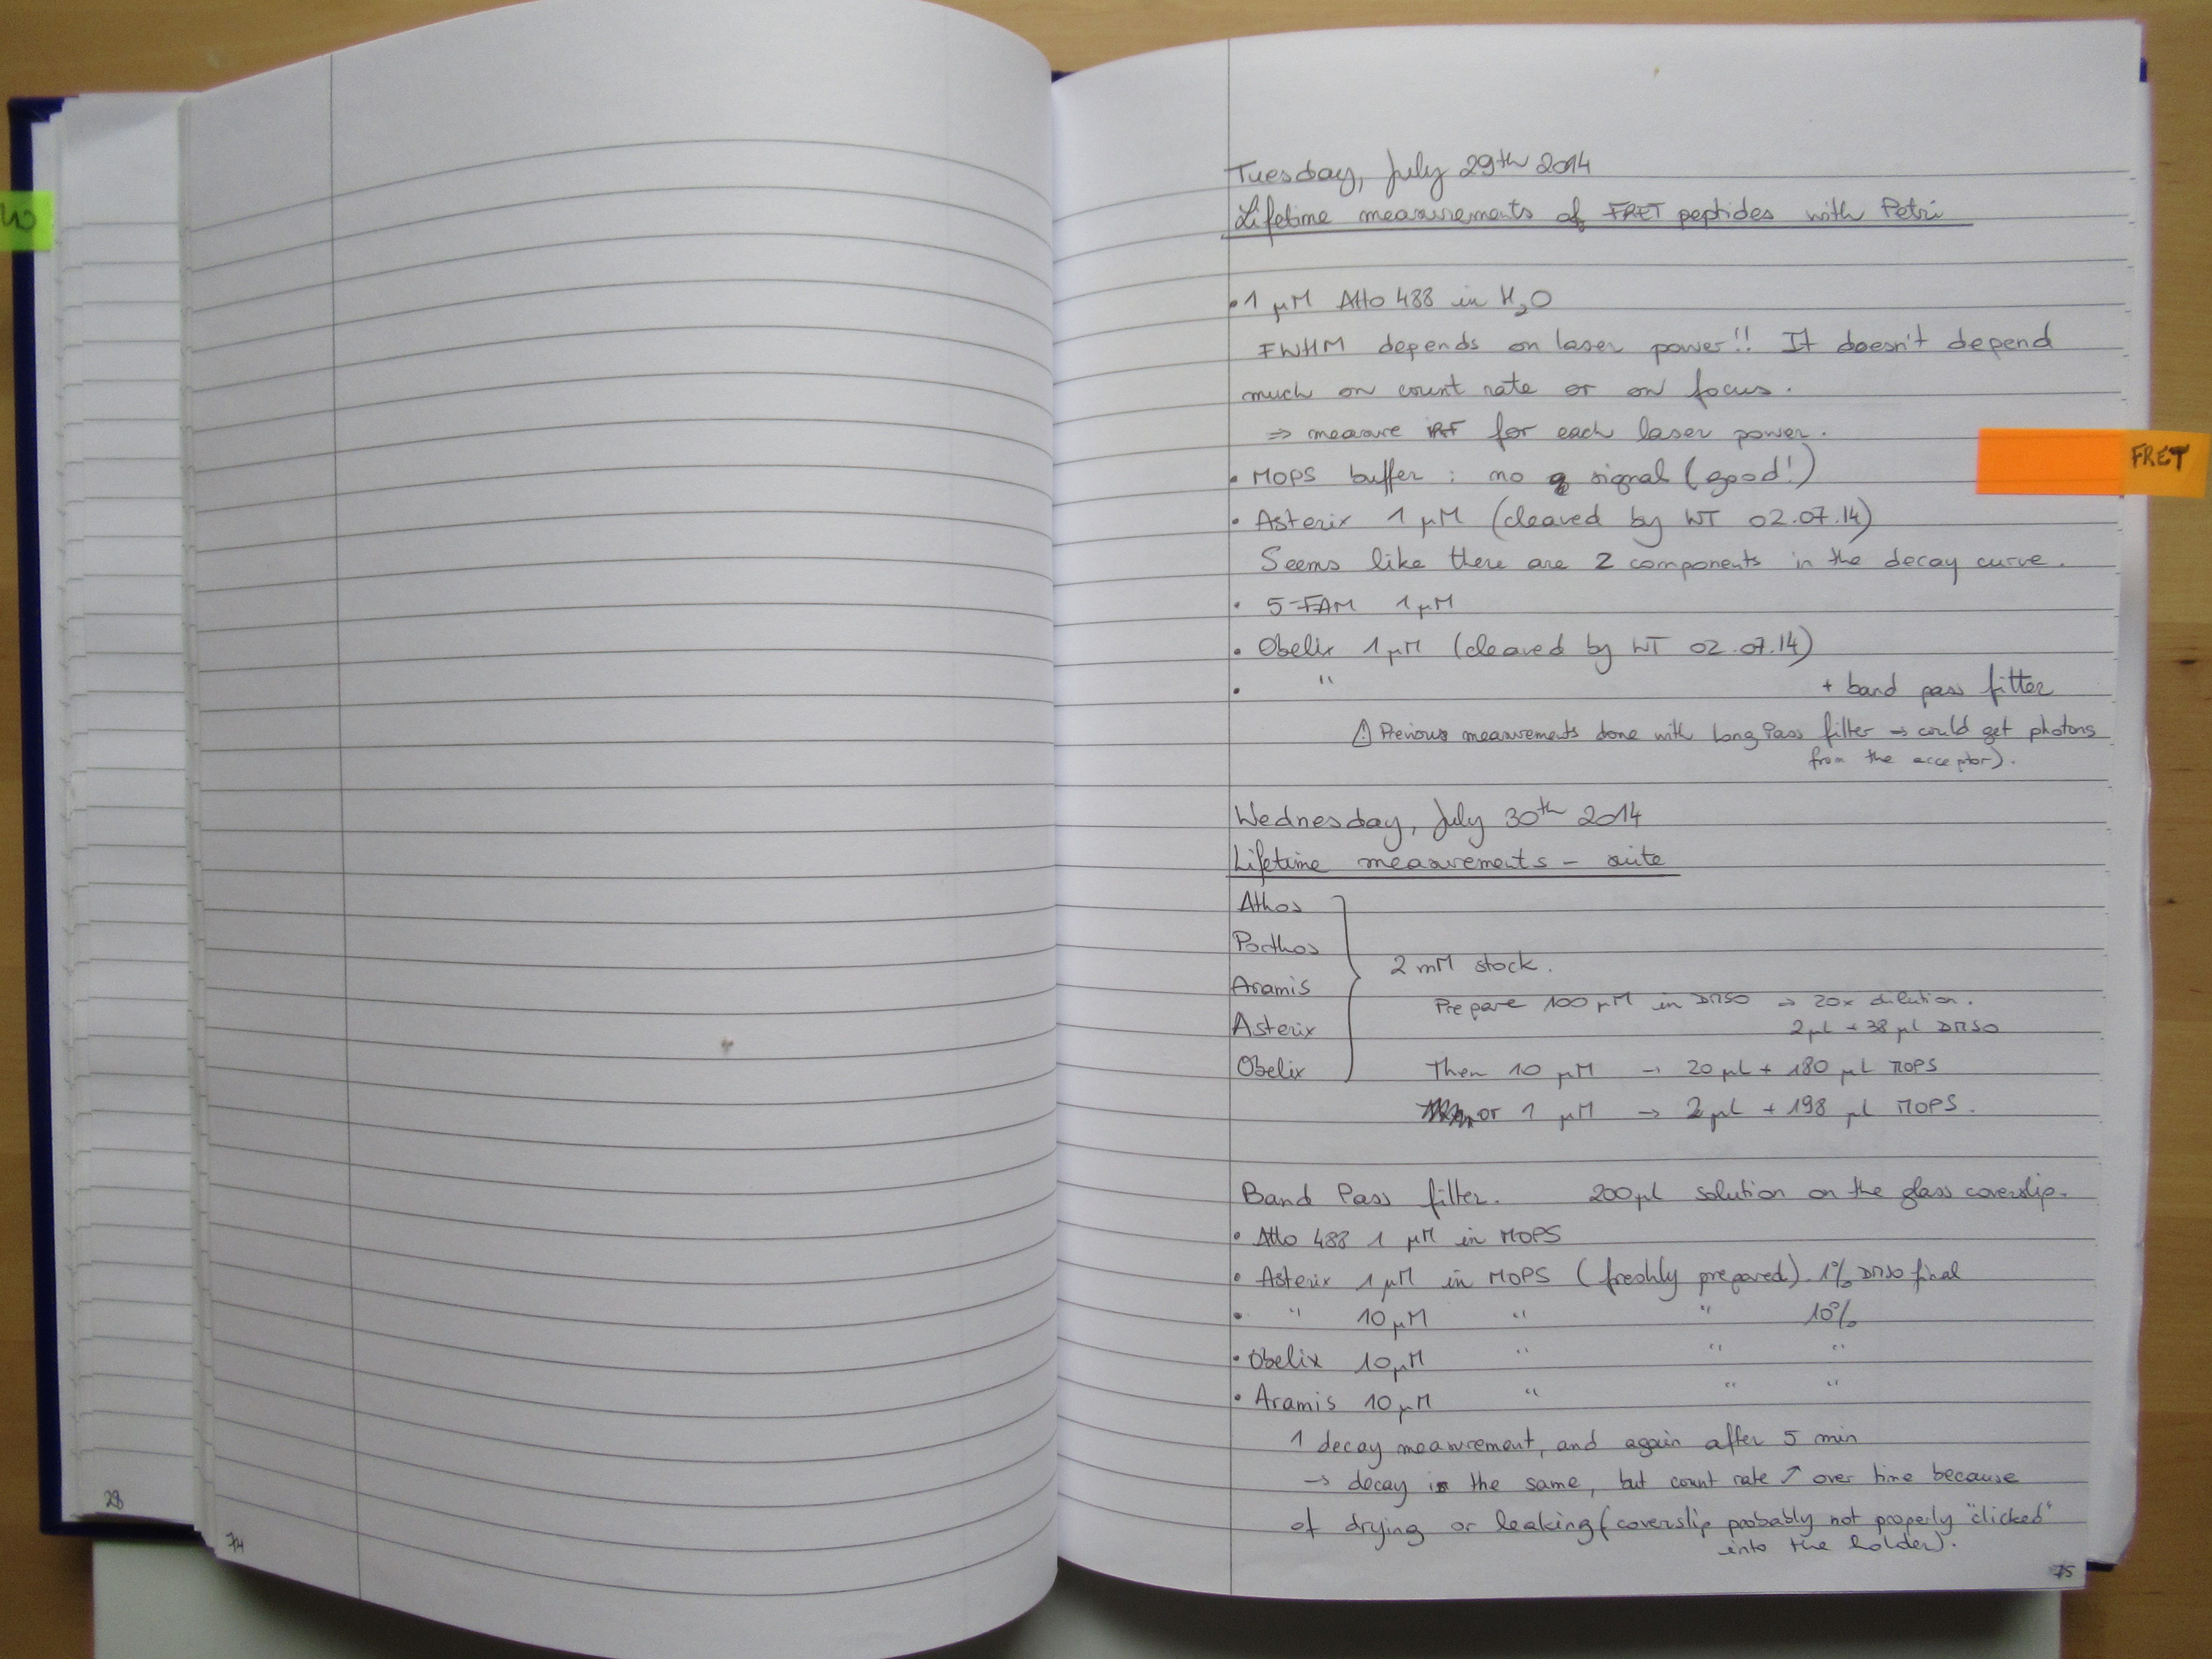 28
74
Tuesday, July 29th 2014
Lifetime measurements of FRET peptides with Petri
• 1 µM Atto 488 in H2O
FWHM depends on laser power!! It doesn't depend
much on count rate or on focus.
⇒ measure IRF for each laser power.
FRET
• MOPS buffer : no signal (good!)
• Asterix 1 µM (cleaved by WT 02.07.14)
Seems like there are 2 components in the decay curve.
• 5-FAM 1 µM
• Obelix 1 µM (cleaved by WT 02.07.14)
• " + band pass filter
⚠ Previous measurements done with Long Pass filter → could get photons
from the acceptor).
Wednesday, July 30th 2014
Lifetime measurements - suite
Athos
Porthos
2 mM stock.
Aramis
Prepare 100 µM in DMSO → 20x dilution.
Asterix
2 µL + 38 µL DMSO
Obelix
Then 10 µM → 20 µL + 180 µL MOPS
or 1 µM → 2 µL + 198 µL MOPS.
Band Pass filter. 200 µL solution on the glass coverslip.
• Atto 488 1 µM in MOPS
• Asterix 1 µM in MOPS (freshly prepared). 1% DMSO final
• " 10 µM " " 10%
• Obelix 10 µM " " "
• Aramis 10 µM " " "
1 decay measurement, and again after 5 min
→ decay is the same, but count rate ↗ over time because
of drying or leaking (coverslip probably not properly "clicked"
into the holder).
75